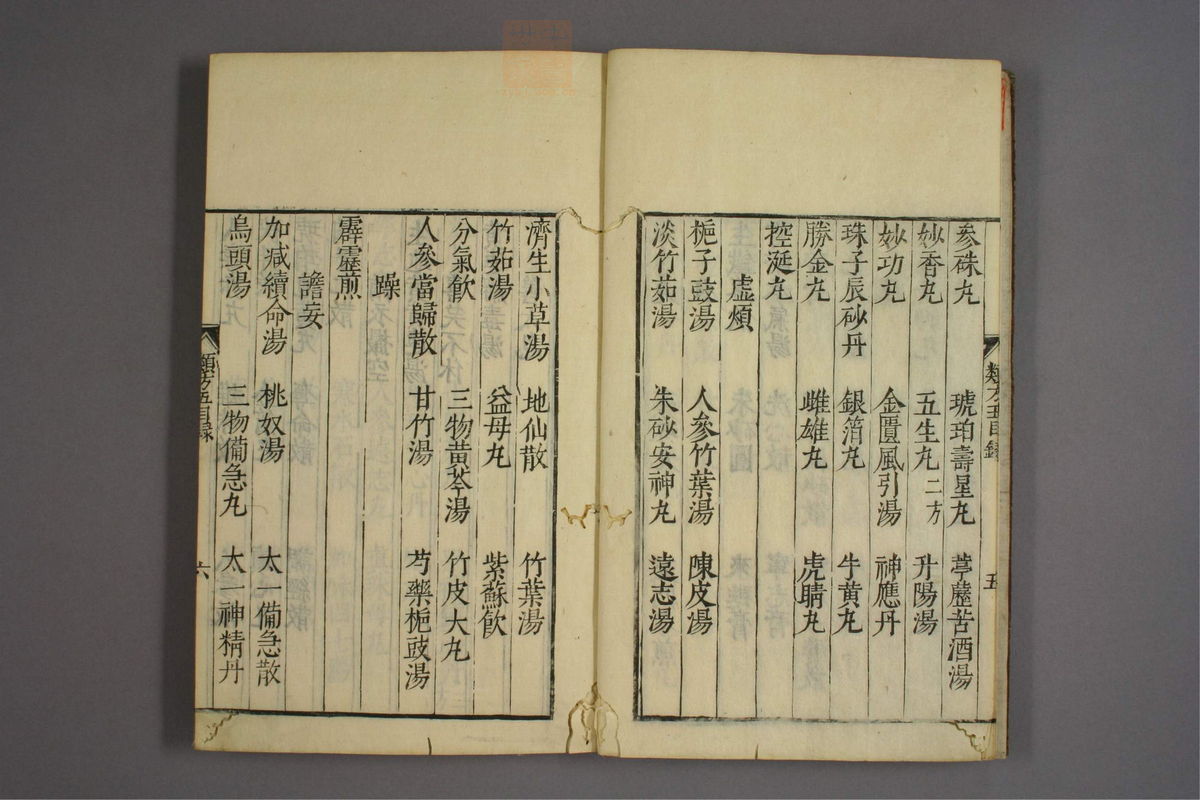 參硃丸 琥珀壽星丸 葶藶苦酒湯
妙香丸 五生丸二方 升陽湯
妙功丸 金匱風引湯 神應丹
珠子辰砂丹 銀箔丸 牛黃丸
勝金丸 雌雄丸 虎睛丸
控涎丸
虛煩
梔子豉湯 人參竹葉湯 陳皮湯
淡竹茹湯 朱砂安神丸 遠志湯
類方五目錄 五
濟生小草湯 地仙散 竹葉湯
竹茹湯 益母丸 紫蘇飲
分氣飲 三物黃芩湯 竹皮大丸
人參當歸散 甘竹湯 芍藥梔豉湯
躁
霹靂煎
譫妄
加減續命湯 桃奴湯 太一備急散
烏頭湯 三物備急丸 太一神精丹
類方五目錄 六